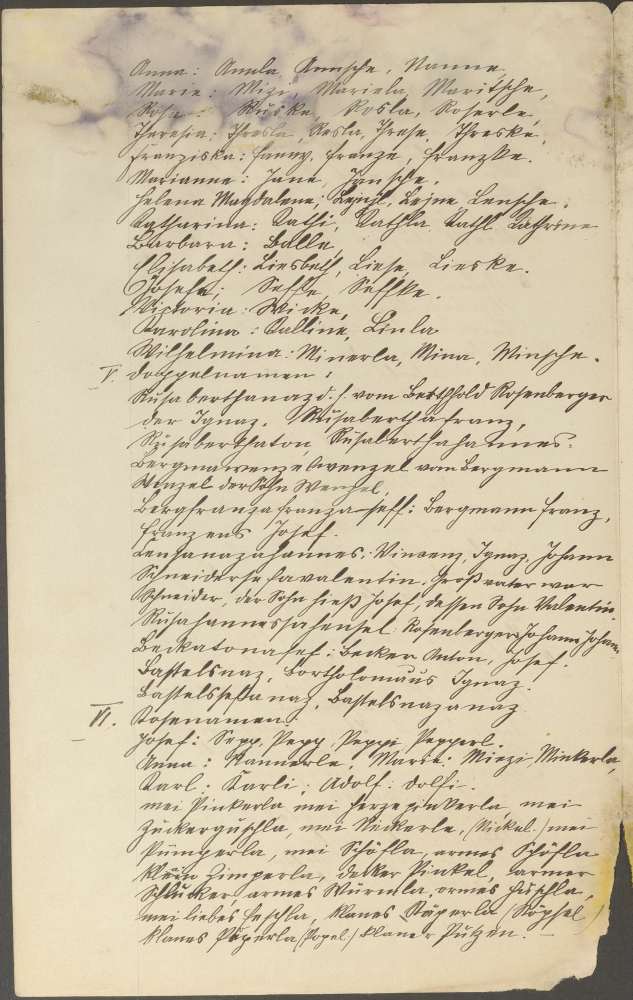 Anna: Annla, Annsche, Nanne,
Marie: Mizi, Mariela, Maritsche,
Rosa: Ruske, Rosla, Roserle,
Theresia: Thresla, Resla, Threse, Threske,
Franziska: Fanny, Franze, Franzke.
Marianne: Jane, Jansche.
Helena Magdalene: Lejne Lensche.
Katharina: Kathi, Kathla Kathl Kathrine
Barbara: Balle,
Elisabeth: Liesbeth, Liese, Lieske.
Josefa: Seffe, Seffke.
Viktoria: Wicke,
Karolina: Kalline, Linla
Wilhelmina: Minerla, Mina, Minsche.
V. Doppelnamen:
Rusaberthanaz d. h. vom Berthhold Rosenberger
der Ignaz. Rusaberthafranz,
Rusaberthaton, Rusaberthahannes.
Bergmawenzelwenzel vom Bergmann
Wenzel der Sohn Wenzel,
Bergfranzafranza-seff: Bergmann Franz,
Franzens Josef.
Lenzanazahannes: Vincenz, Ignaz, Johann
Schneidersefavalentin. Großvater war
Schneider, der Sohn hieß Josef, dessen Sohn Valentin.
Rusahannessahensel. Rosenberger Johann Johann.
Beckatonasef: Becker Anton, Josef.
Bastelsnaz, Bortholomäus Ignaz.
Bastelsseffanaz, Bastelsnazanaz
VI. Kosenamen:
Josef: Sepp, Pepp, Peppi Pepperl.
Anna: Nannerle, Marie: Miezi, Minkerla,
Karl: Karli, Adolf: Dolfi.
mei Pinkerla mei Herzepinkerla, mei
Zuckerguschla, mei Nickerle, (Nickel.) mei
Pumperla, mei Schofla, armes Schofla
klein Zimperla, Pinkel, armer
Schlucker, armes Würmla, ormes Häschla,
mei liebes Haschla, klanes Käperla (Köpfel)
klanes Päperla (Popel) klaner Putzen.